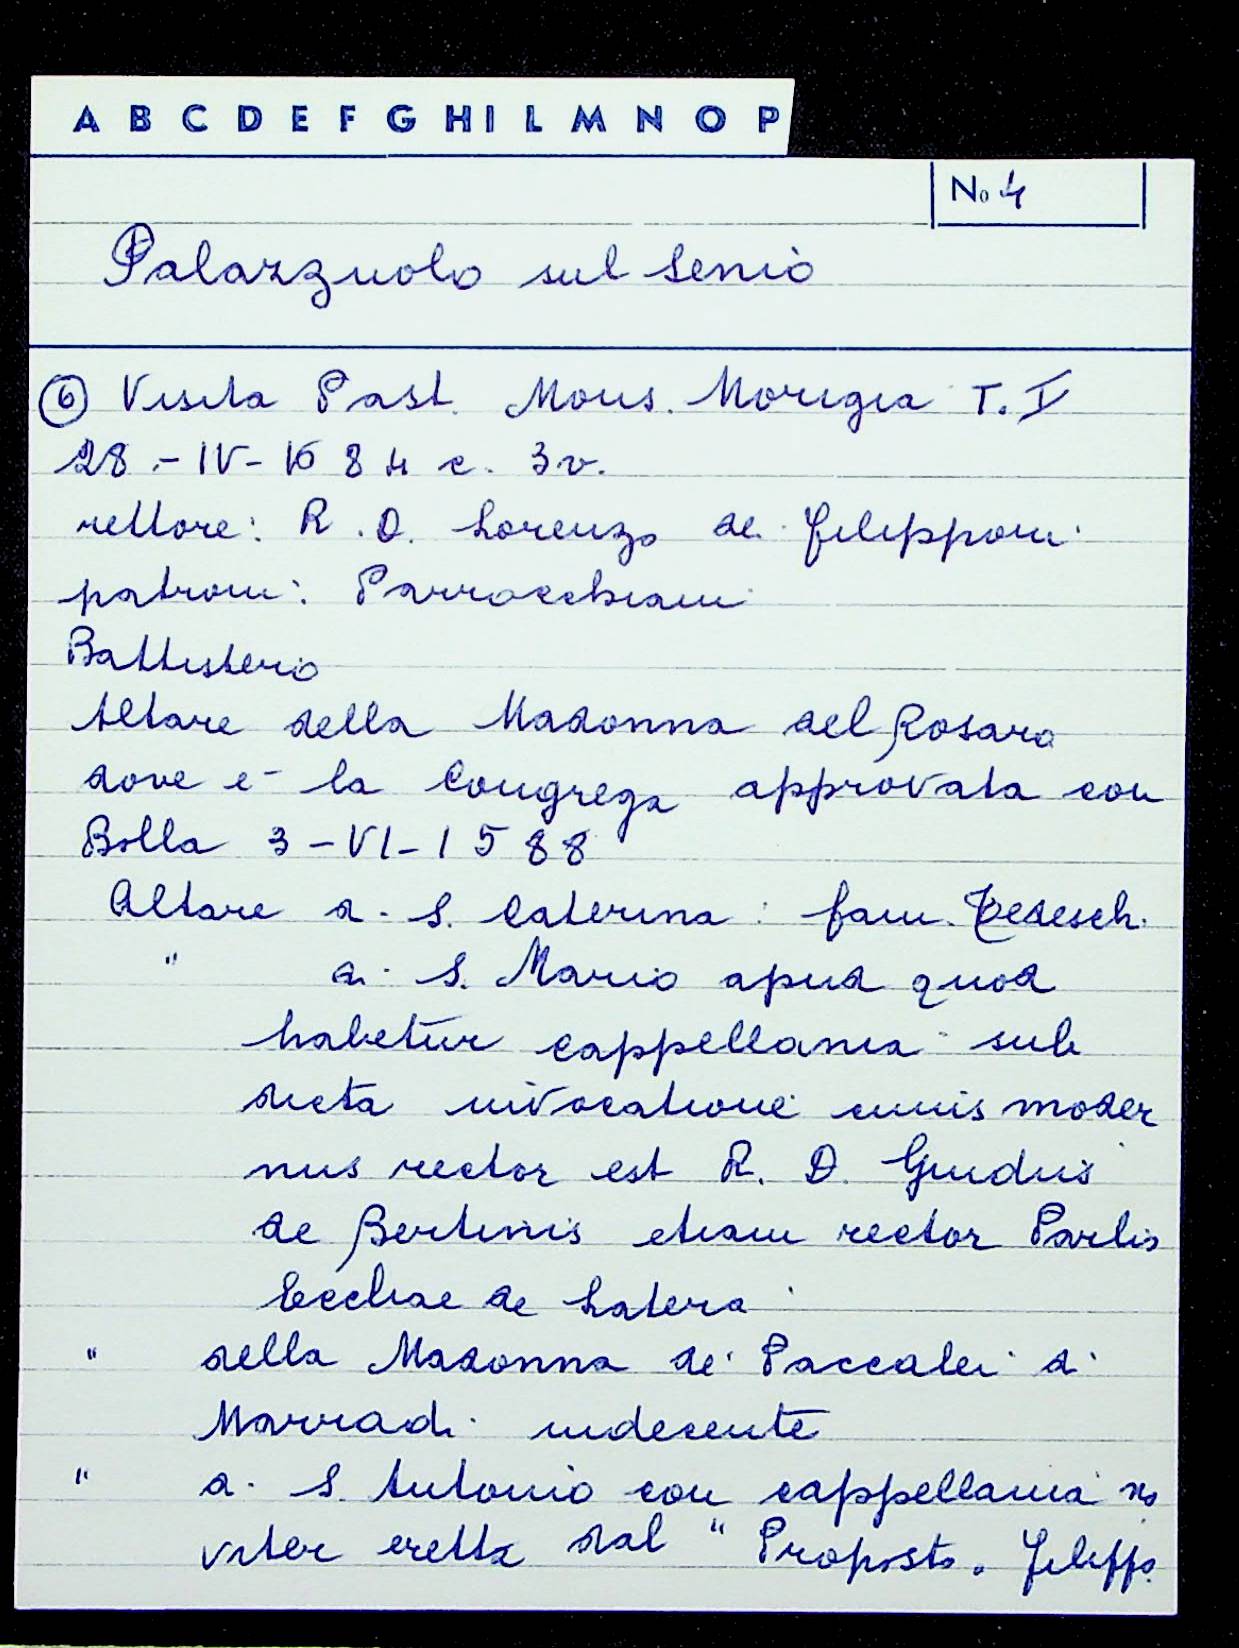 A B C D E F G H I L M N O P
No 4
Palazzuolo sul Senio
⑥ Visita Past. Mons. Morigia T. I
28 - IV - 1684 c. 3v.
rettore: R. D. Lorenzo de Filipponi
patroni: Parrocchiani
Battistero
Altare della Madonna del Rosaro
dove è la Congrega approvata con
Bolla 3 - VI - 1588
Altare di S. Caterina: fam. Tedeschi
" di S. Mario apud quod
habetur cappellania sub
dicta invocatione cuius moder
nus rector est R. D. Guidus
de Bertinis etiam rector Parlis
Ecclae de Latera
" della Madonna de' Paccalei di
Marradi indecente
" di S. Antonio con cappellania no
viter eretta dal "Proposto. Filippo